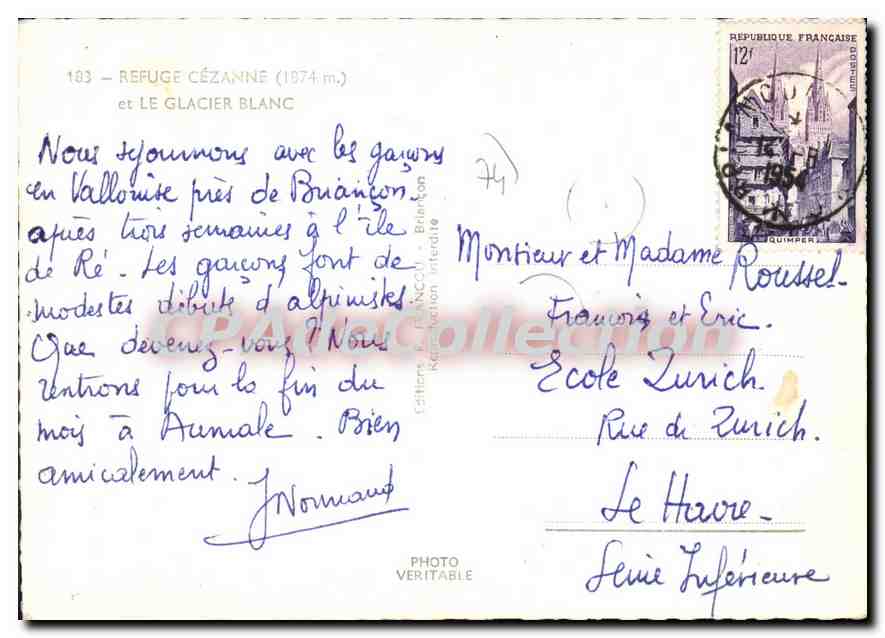 183 - REFUGE CÉZANNE (1874 m.)
et LE GLACIER BLANC
Nous séjournons avec les garçons
en Vallouise près de Briançon.
après trois semaines à l'île
de Ré. Les garçons font de
modestes débuts d'alpinistes.
Que devenez-vous? Nous
rentrons pour la fin du
mois à Aumale. Bien
amicalement.
JNormand
74
Editions F. FRANCOU - Briançon
Reproduction interdite
PHOTO
VERITABLE
RÉPUBLIQUE FRANÇAISE
12f
POSTES
1954
QUIMPER
Monsieur et Madame Roussel
François et Eric.
Ecole Zurich.
Rue de Zurich.
Le Havre -
Seine Inférieure
CPAdeCollection